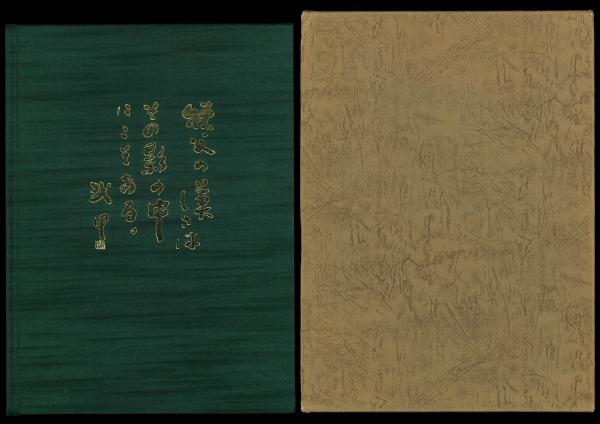 秩父の美
しさは
その影の中
にこそある。
武甲